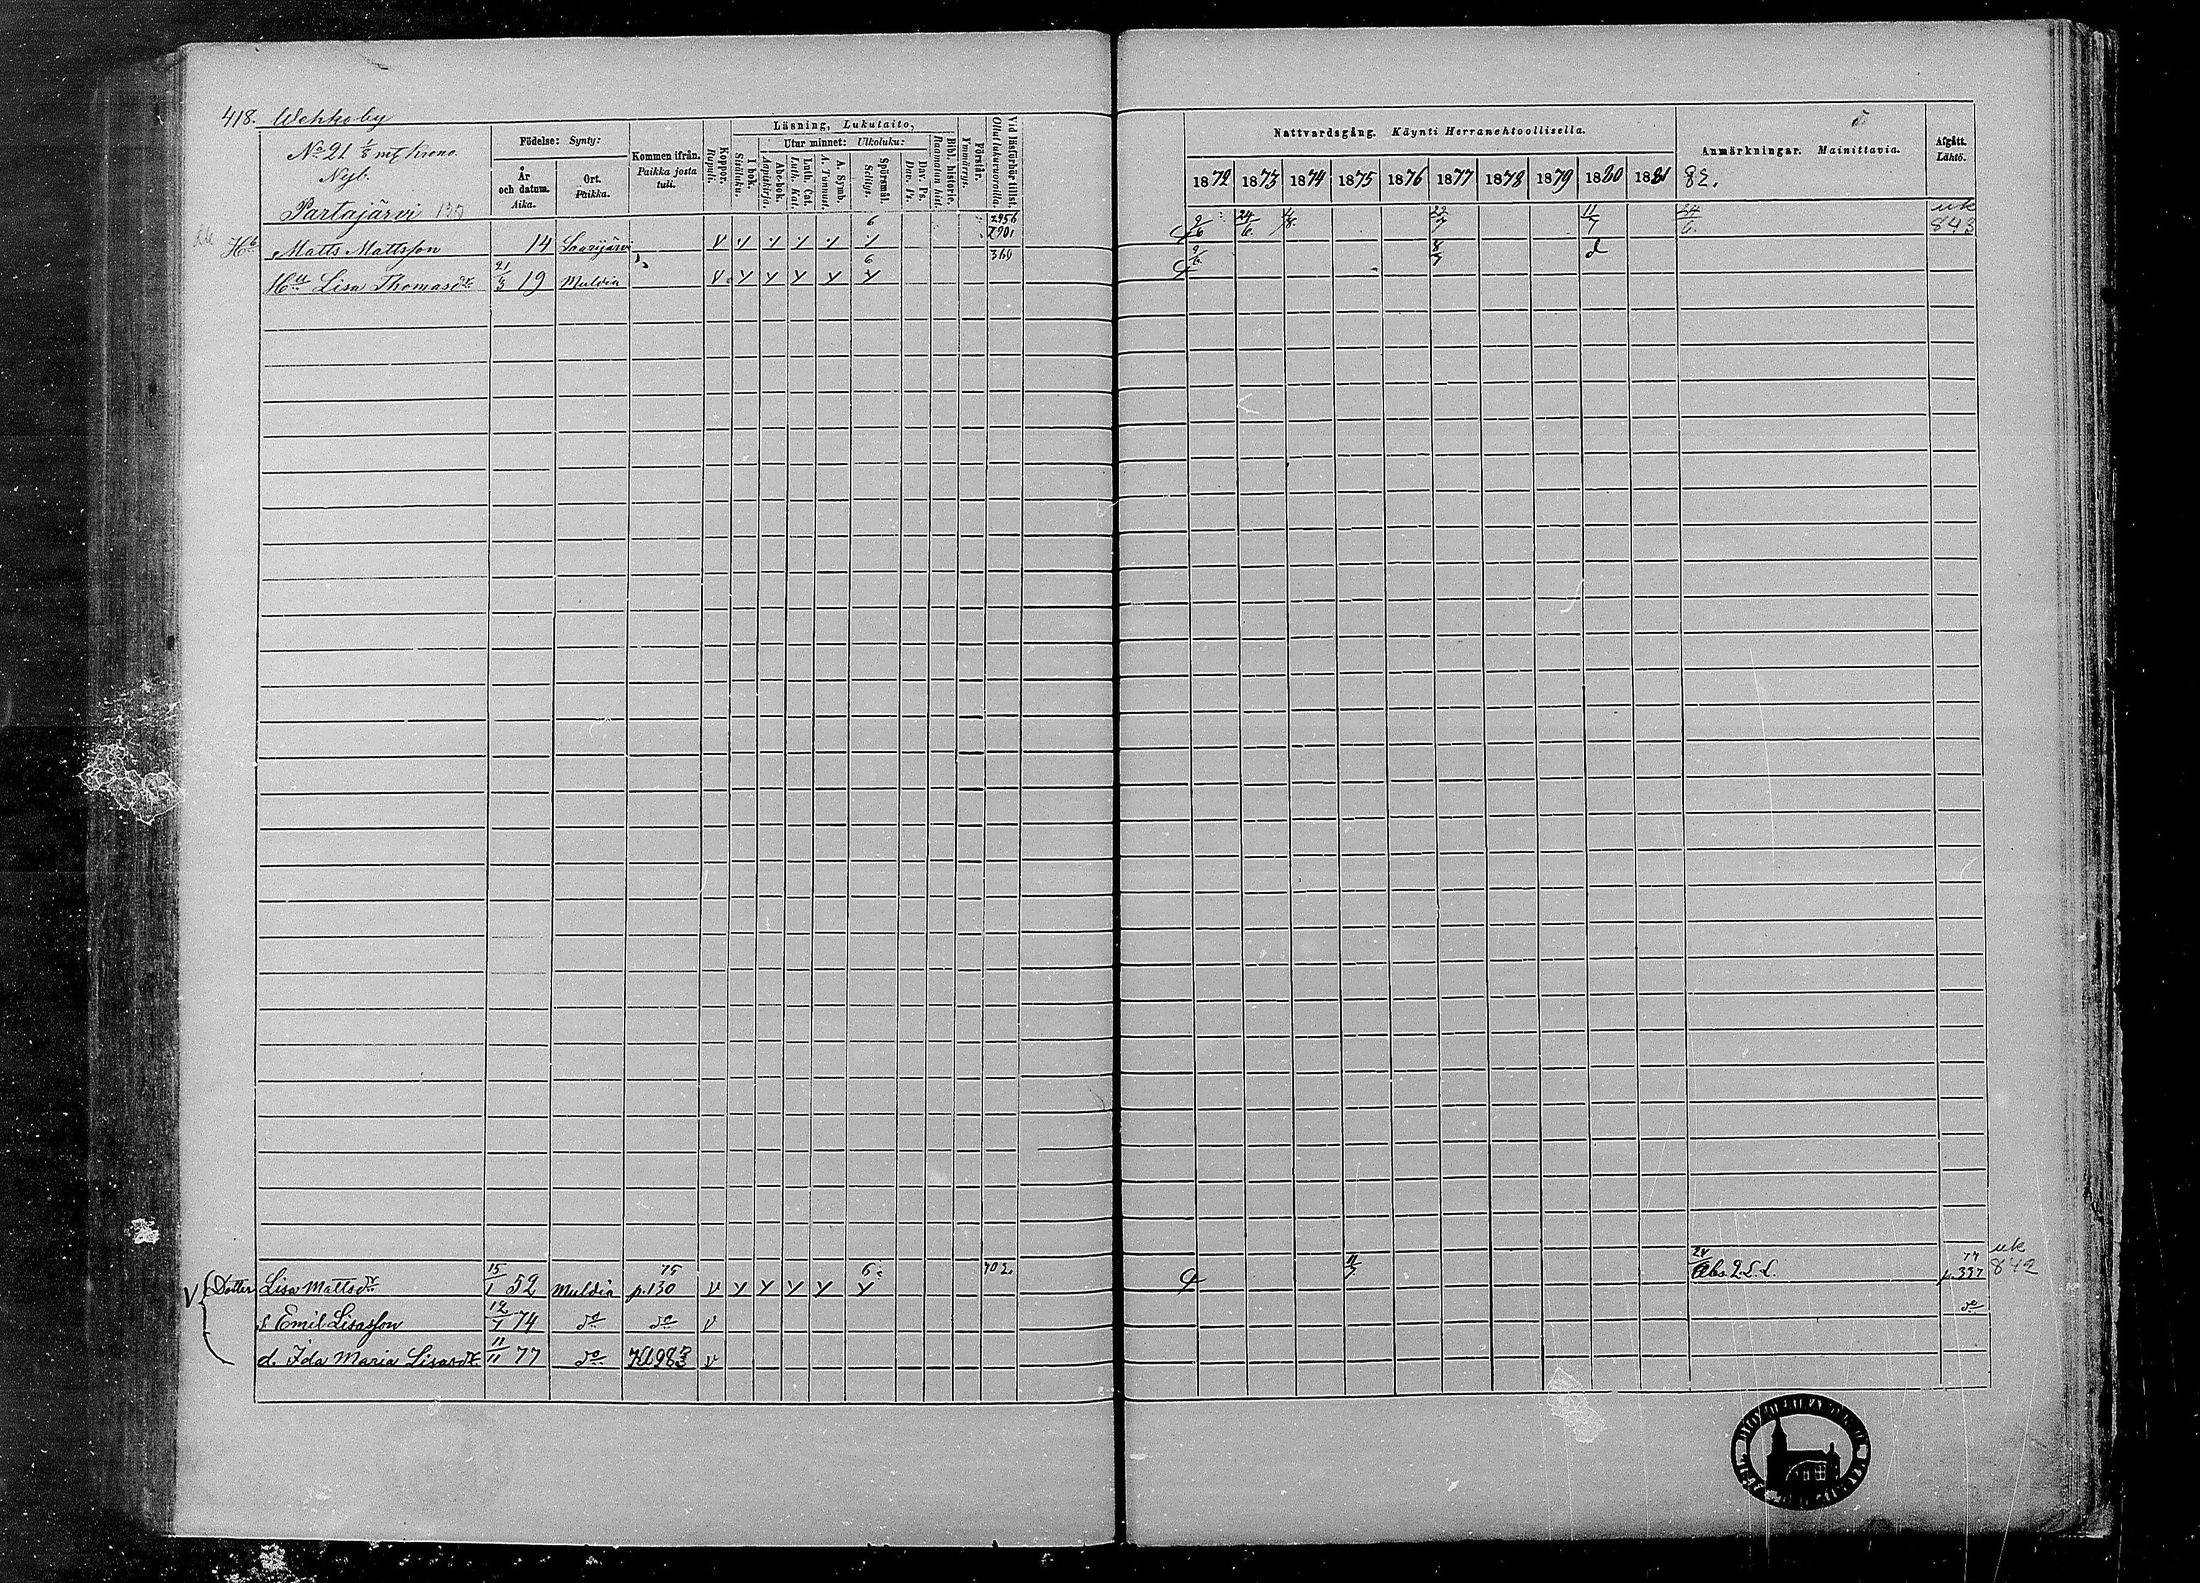 418. Wehkoby
No 21 1/8 mtl krono.
Nyb.
Partajärvi 130
Födelse: Synty:
År och datum. Aika.
Ort. Paikka.
Kommen ifrån. Paikka josta tuli.
Koppor. Rupuli.
Läsning, Lukutaito,
I bok. Sisäluku.
Utur minnet: Ulkoluku:
Abc-bok. Aapiskirja.
Luth. Cat. Luth. Kat.
A. Symb. A. Tunnust.
Spörsmål. Selitys.
Dav. Ps. Dav. Ps.
Bibl. historie. Raamatun hist.
Förstår. Ymmärrys.
Vid läsförhör tillst. Ollut lukuvuorolla.
Nattvardsgång. Käynti Herranehtoollisella.
1872 1873 1874 1875 1876 1877 1878 1879 1880 1881
Anmärkningar. Mainittavia.
82.
Afgått. Lähtö.
Hb Matts Mattsson 14 Saarijärvi v 6 2956 2901 2/6 24/6 11/7 24/6 uk 843
Hu Lisa Thomasdr 21/3 19 Muldia v 6 360 2/6 8/7 d
Dotter Lisa Mattsdr 15/1 52 Muldia 75 p.130 v 6 702 11/7 Abs. 2. L. L. 77 p.337 uk 842
s Emil Lisasson 12/1 74 do do v do
d. Ida Maria Lisasdr 11/11 77 do Kl983 v